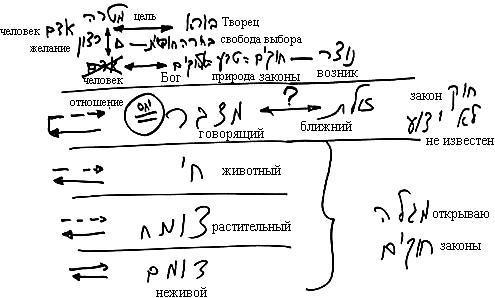 человек אדם מטרה цель בורא Творец
желание רצון בחירה חופשית свобода выбора
אדם אלקים = טבע = חוקים — נוצר
человек Бог природа законы возник
отношение יחס מדבר ? זולת закон חוק
говорящий ближний לא ידוע
не известен
חי животный
צומח растительный מגלה открываю
דומם חוקים законы
неживой